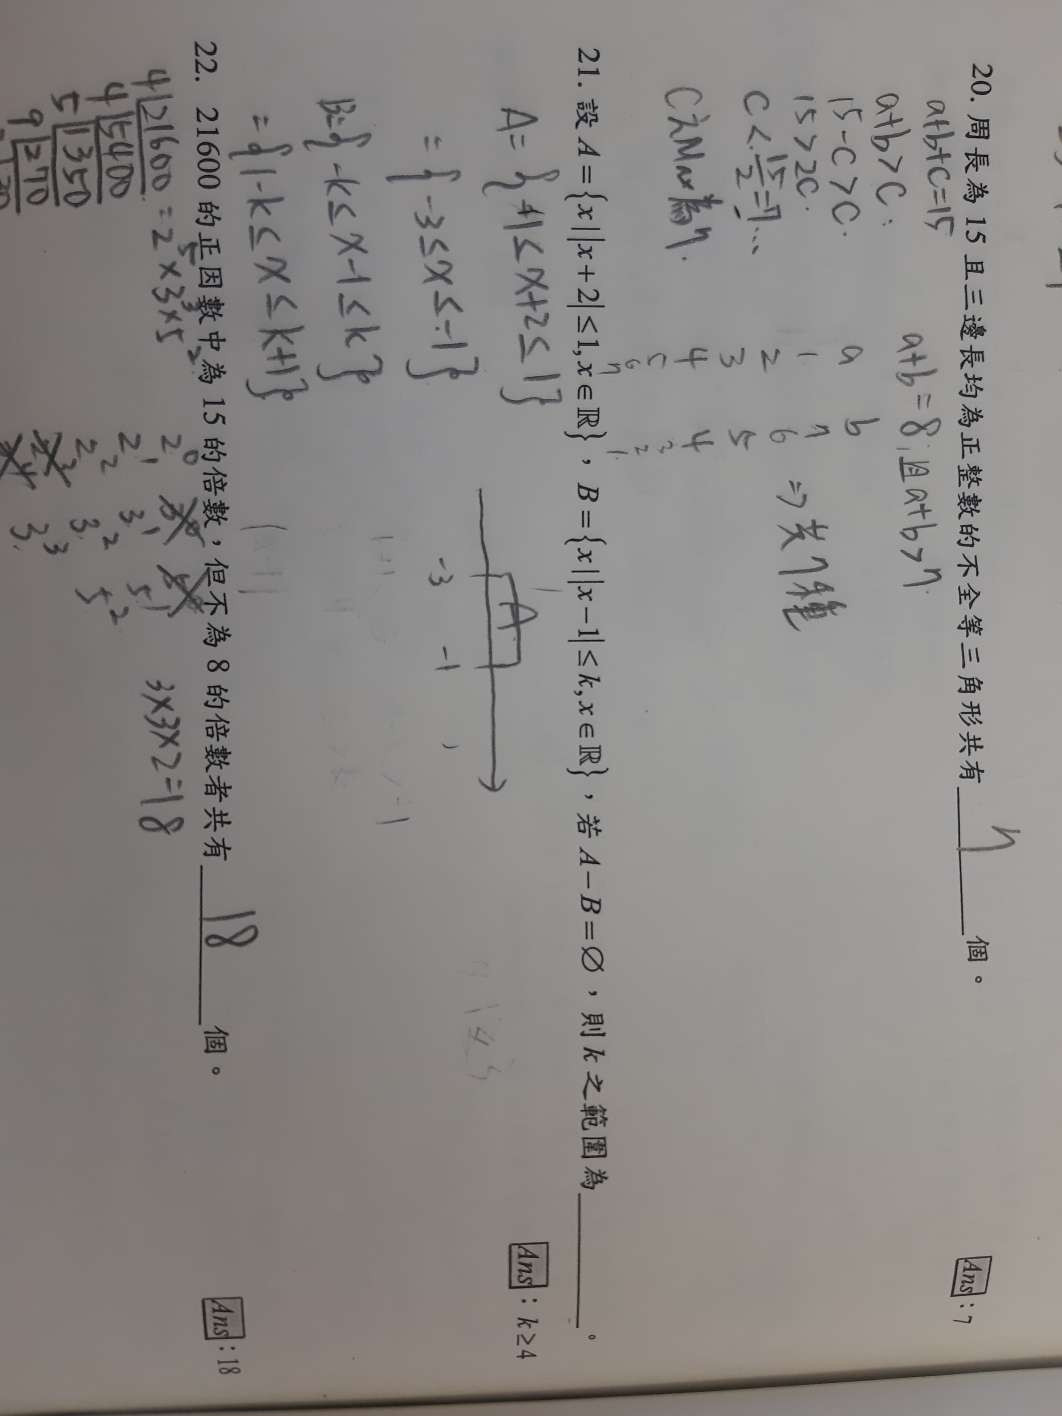 20. 周長為 15 且三邊長均為正整數的不全等三角形共有 7 個。
Ans : 7
a+b+c=15
a+b>c
15-c>c
15>2c
c<15/2=7...
c之Max為7.
a+b=8,且a+b>7
a b
1 7
2 6
3 5
4 4
5 3
6 2
7 1
⇒共7種
21. 設 A={x||x+2|≤1,x∈ℝ}，B={x||x−1|≤k,x∈ℝ}，若 A−B=∅，則 k 之範圍為 ______。
Ans : k≥4
A={-1≤x+2≤1}
={-3≤x≤-1}
A
-3 -1
B={-k≤x-1≤k}
={1-k≤x≤k+1}
22. 21600 的正因數中為 15 的倍數，但不為 8 的倍數者共有 18 個。
Ans : 18
4|21600 = 2⁵×3³×5²
4|5400
5|1350
9|270
2⁰ 3⁰ 5⁰
2¹ 3¹ 5¹
2² 3² 5²
2³ 3³
3×3×2=18